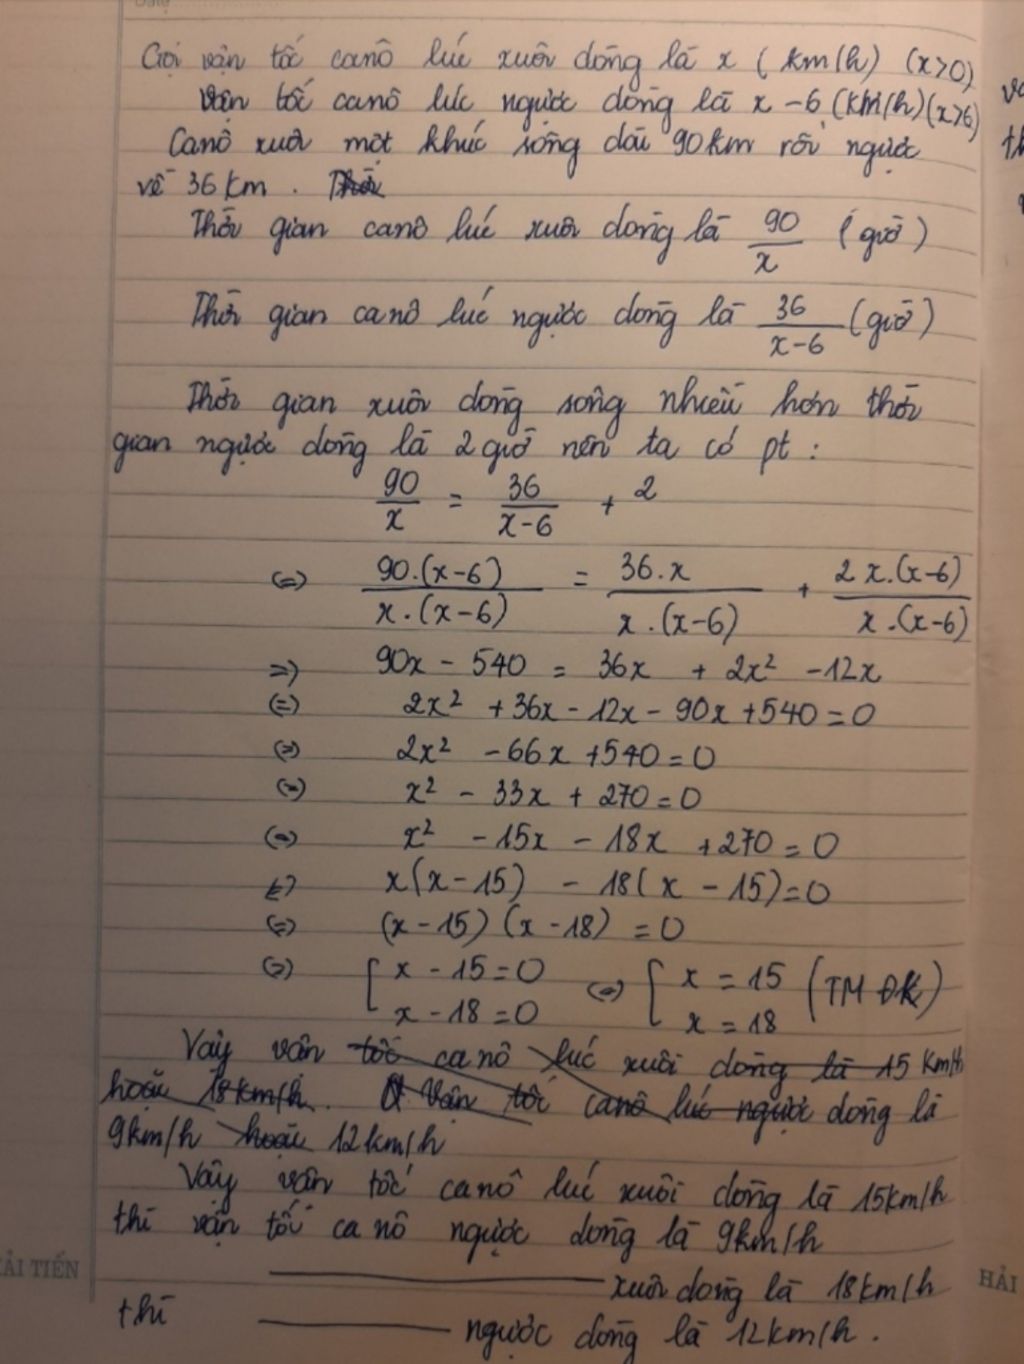 Date
Gọi vận tốc canô lúc xuôi dòng là x (km/h) (x>0)
Vận tốc canô lúc ngược dòng là x - 6 (km/h)(x>6)
Canô xuôi một khúc sông dài 90km rồi ngược
về 36km. Thời
Thời gian canô lúc xuôi dòng là 90/x (giờ)
Thời gian canô lúc ngược dòng là 36/(x-6) (giờ)
Thời gian xuôi dòng sông nhiều hơn thời
gian ngược dòng là 2 giờ nên ta có pt :
90/x = 36/(x-6) + 2
<=> 90.(x-6)/x.(x-6) = 36.x/x.(x-6) + 2x.(x-6)/x.(x-6)
=> 90x - 540 = 36x + 2x² - 12x
<=> 2x² + 36x - 12x - 90x + 540 = 0
<=> 2x² - 66x + 540 = 0
<=> x² - 33x + 270 = 0
<=> x² - 15x - 18x + 270 = 0
<=> x(x - 15) - 18(x - 15) = 0
<=> (x - 15) (x - 18) = 0
<=> [ x - 15 = 0 <=> [ x = 15 (TM ĐK)
x - 18 = 0 x = 18
Vậy vận tốc ca nô lúc xuôi dòng là 15 km/h
hoặc 18km/h. Vận tốc canô lúc ngược dòng là
9km/h hoặc 12km/h
Vậy vận tốc ca nô lúc xuôi dòng là 15km/h
thì vận tốc ca nô ngược dòng là 9km/h
xuôi dòng là 18km/h
thì ngược dòng là 12km/h.
ẢI TIẾN
HẢI